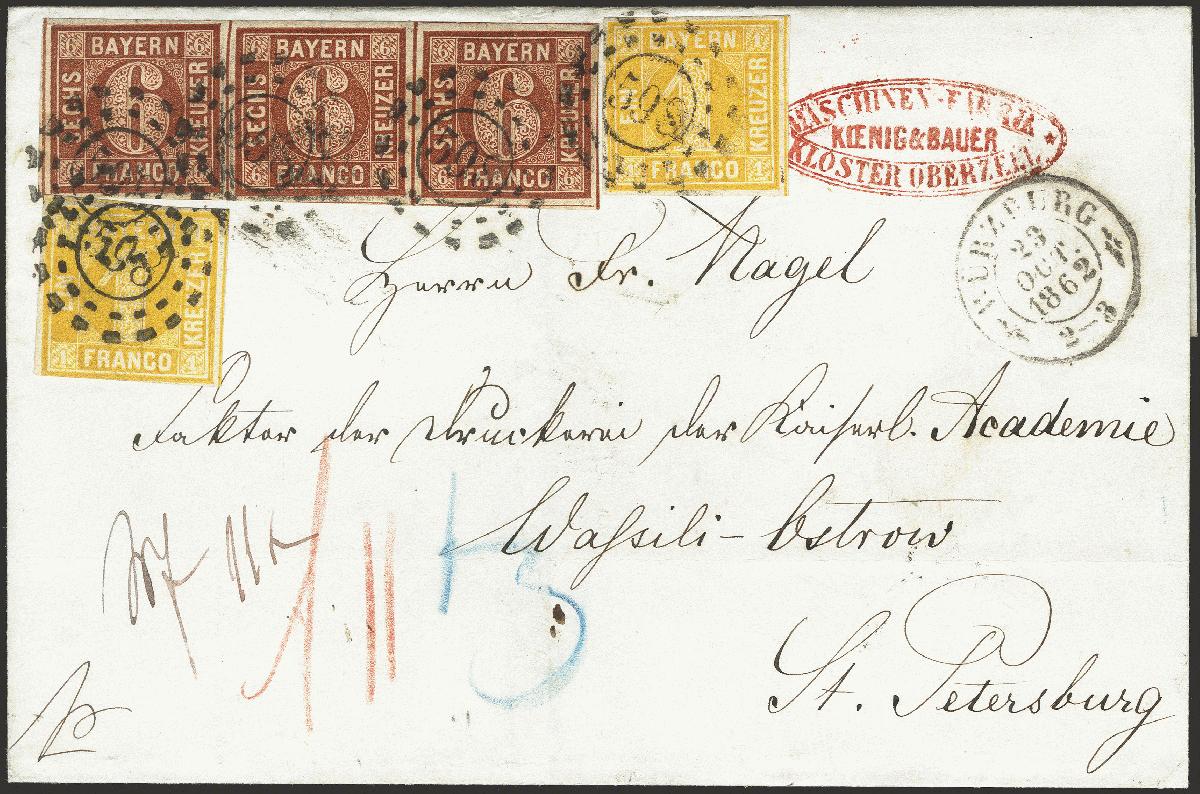 6 BAYERN 6
SECHS 6 KREUZER
6 FRANCO 6
6 BAYERN 6
SECHS 6 KREUZER
FRANCO
6 BAYERN 6
SECHS 6 KREUZER
FRANCO 6
BAYERN 1
EIN 1 KREUZER
1 FRANCO 1
EIN 1 KREUZER
1 FRANCO 1
MASCHINEN-FABRIK
KŒNIG&BAUER
KLOSTER OBERZELL
WÜRZBURG
23
OCT.
1862
2-3
Herrn Fr. Nagel
Faktor der Druckerei der Kaiserl. Academie
Waßili-Ostrow
St. Petersburg